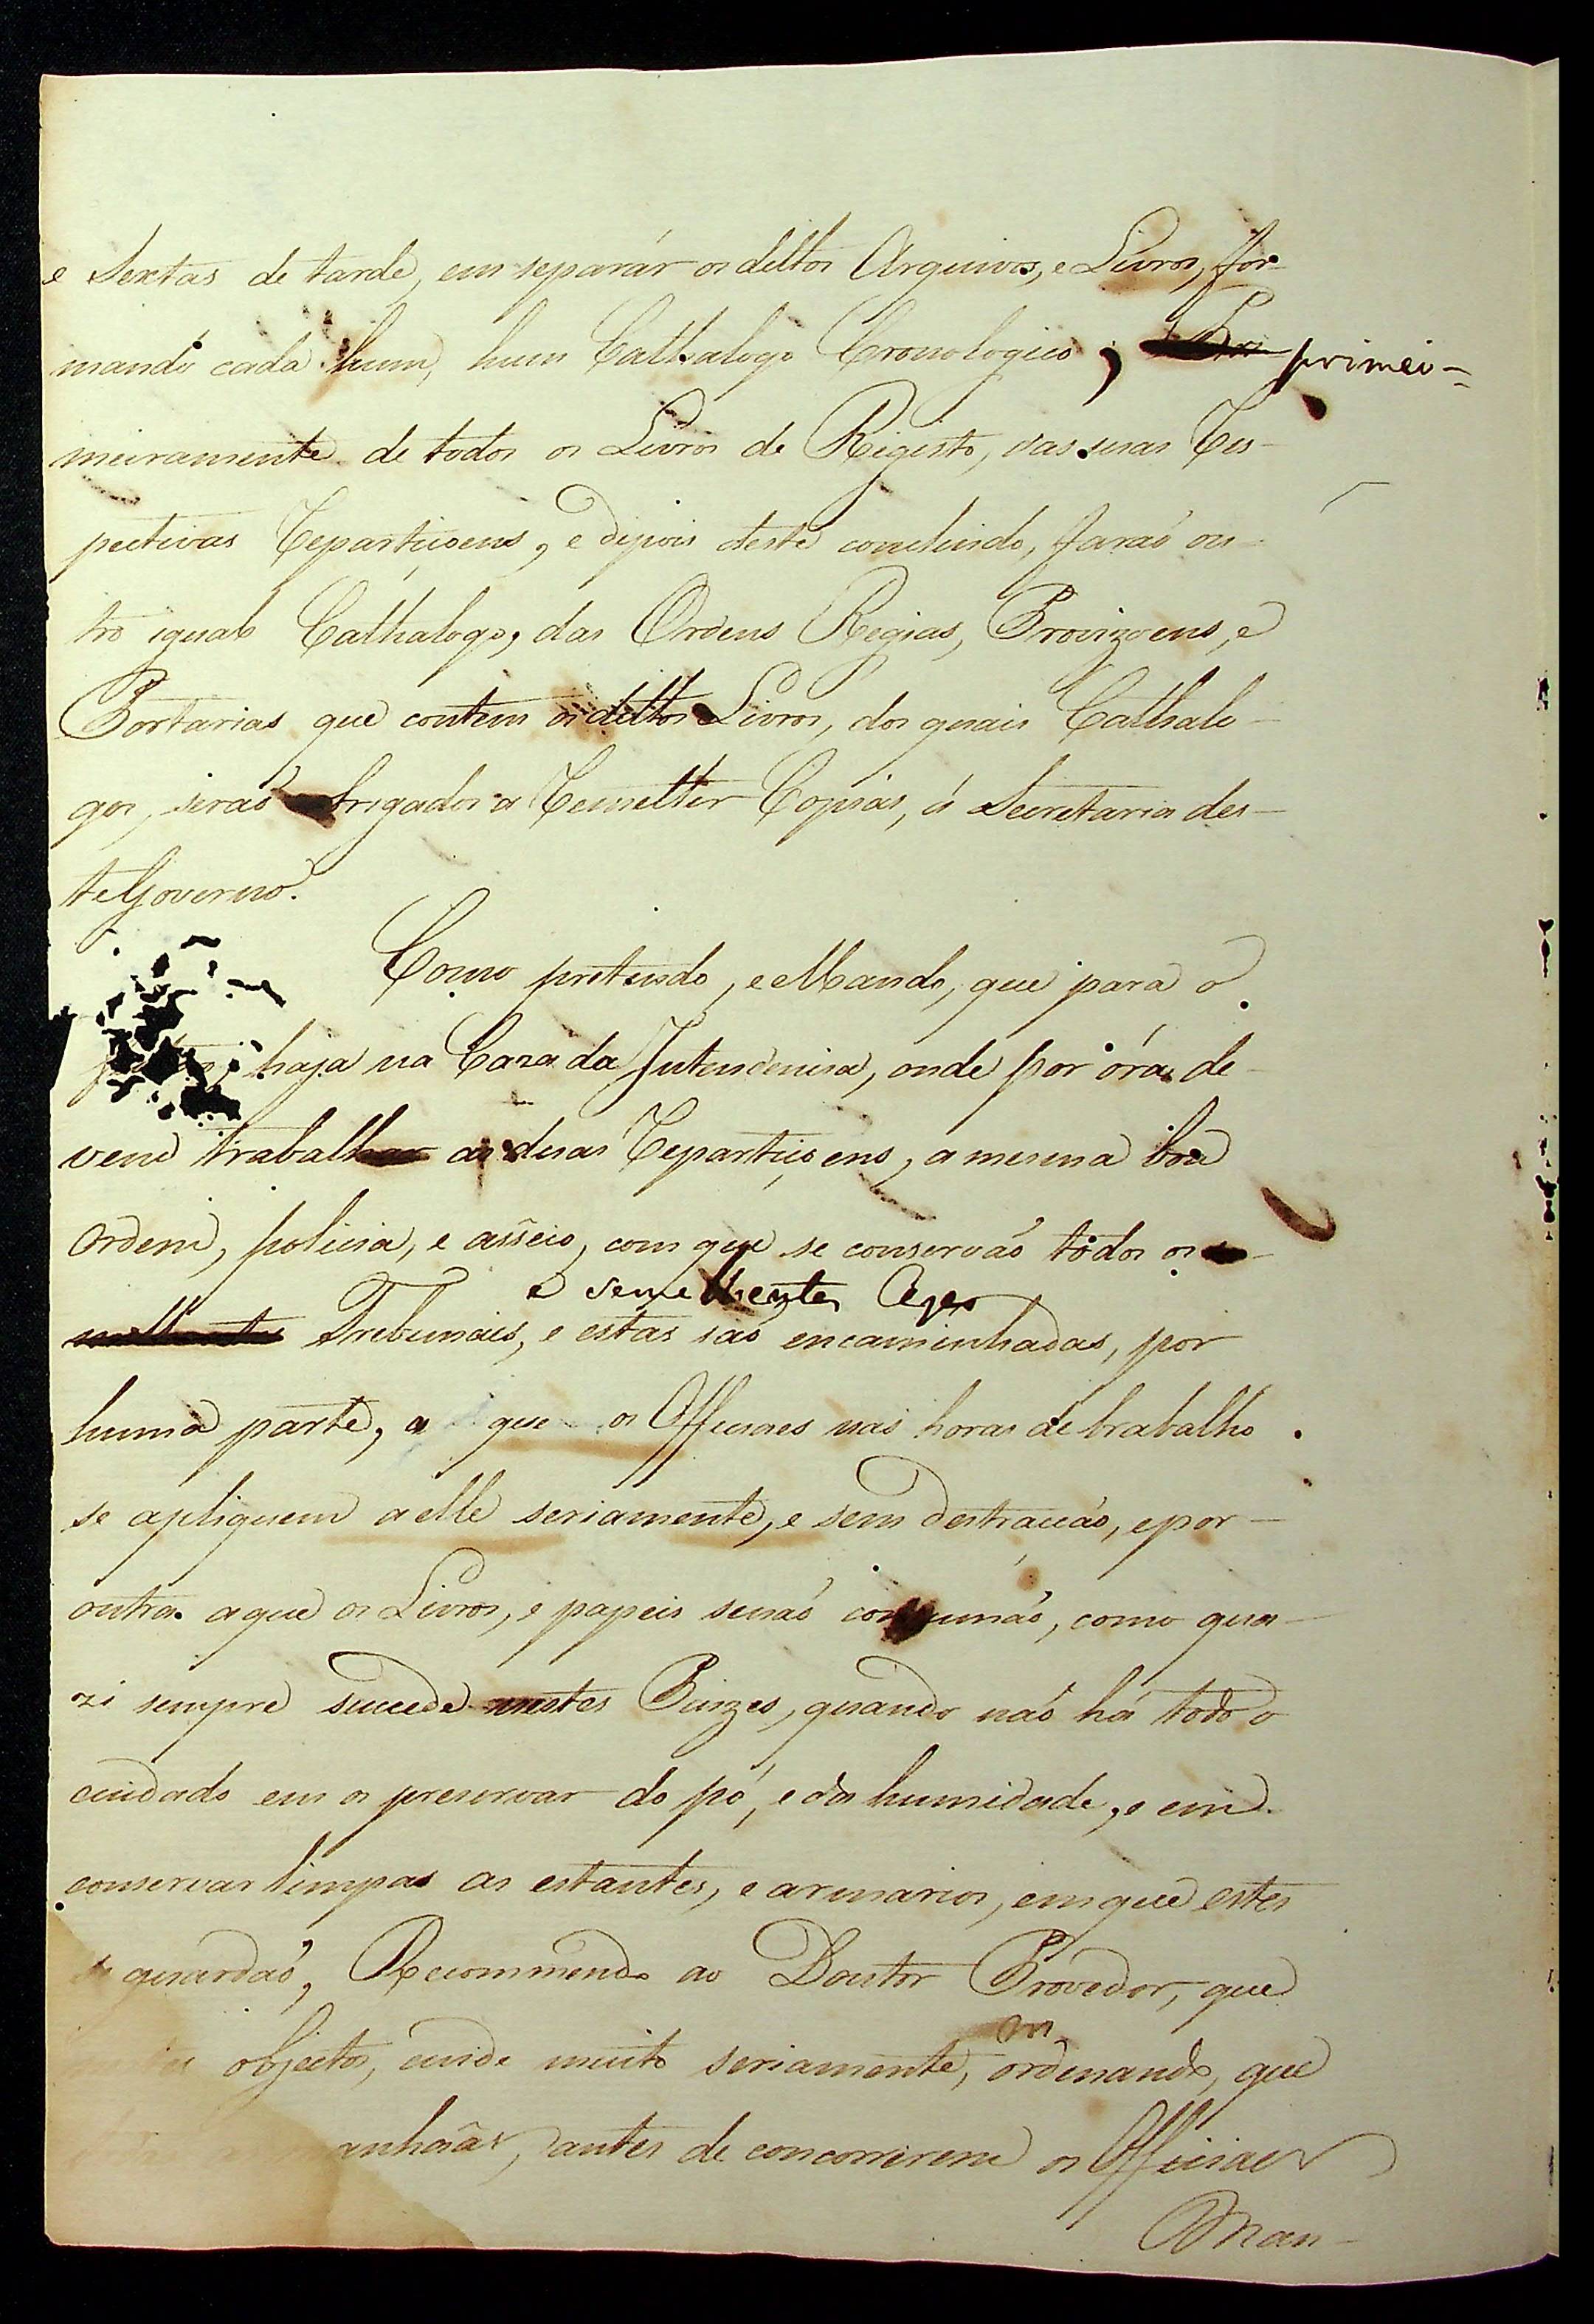 e Sextas de tarde, em separár os dittos Arquivos, e Livros, for-
mando cada hum, hum Cathalogo Cronologico, primei-
meiramente de todos os Livros de Rigisto, das suas Res-
pectivas Repartiçoens, e dipois deste concluido, faraó ou-
tro igual Cathalogo, das Ordens Regias, Provizoens, e
Portarias que contem os dittos Livros, dos quais Cathalo-
gos, seraó obrigados a Remetter Copias, á Secretaria des-
te Governo.
Como pretendo, e Mando, que para o
haja na Caza da Intendencia, onde por óra de-
vem trabalhar as duas Repartiçoens, a mesma boa
ordem, policia, e asseio, com que se conservaó todos os
semelhentes
Tribunais, e estas saó encaminhadas, por
huma parte, a que os Officiaes nas horas de trabalho
se apliquem a elle seriamente, e sem destracaó, e por-
outra a que os Livros, e papeis senaó consumaó, como qua-
zi sempre sucede nestes Paizes, quando naó há todo o
cuidado em os preservar do pó, e da humidade, e em
conservar limpas as estantes, e armarios, em que estes
se guardaó, Recommendo ao Doutor Provedor, que
objectos, cuide muito seriamente, ordenando, que
anhaãs, antes de concorrerem os Officiaes
Man-